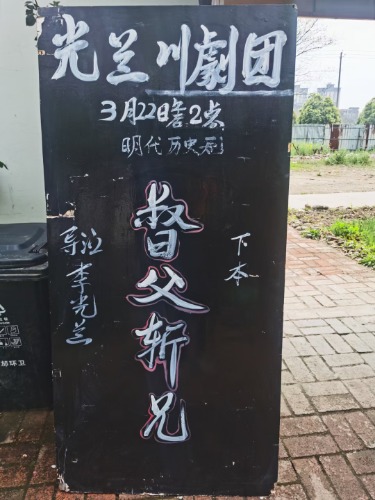 光兰川劇团
3月22日2点
明代历史剧
督父斩兄
下本
导演 李光兰
环卫